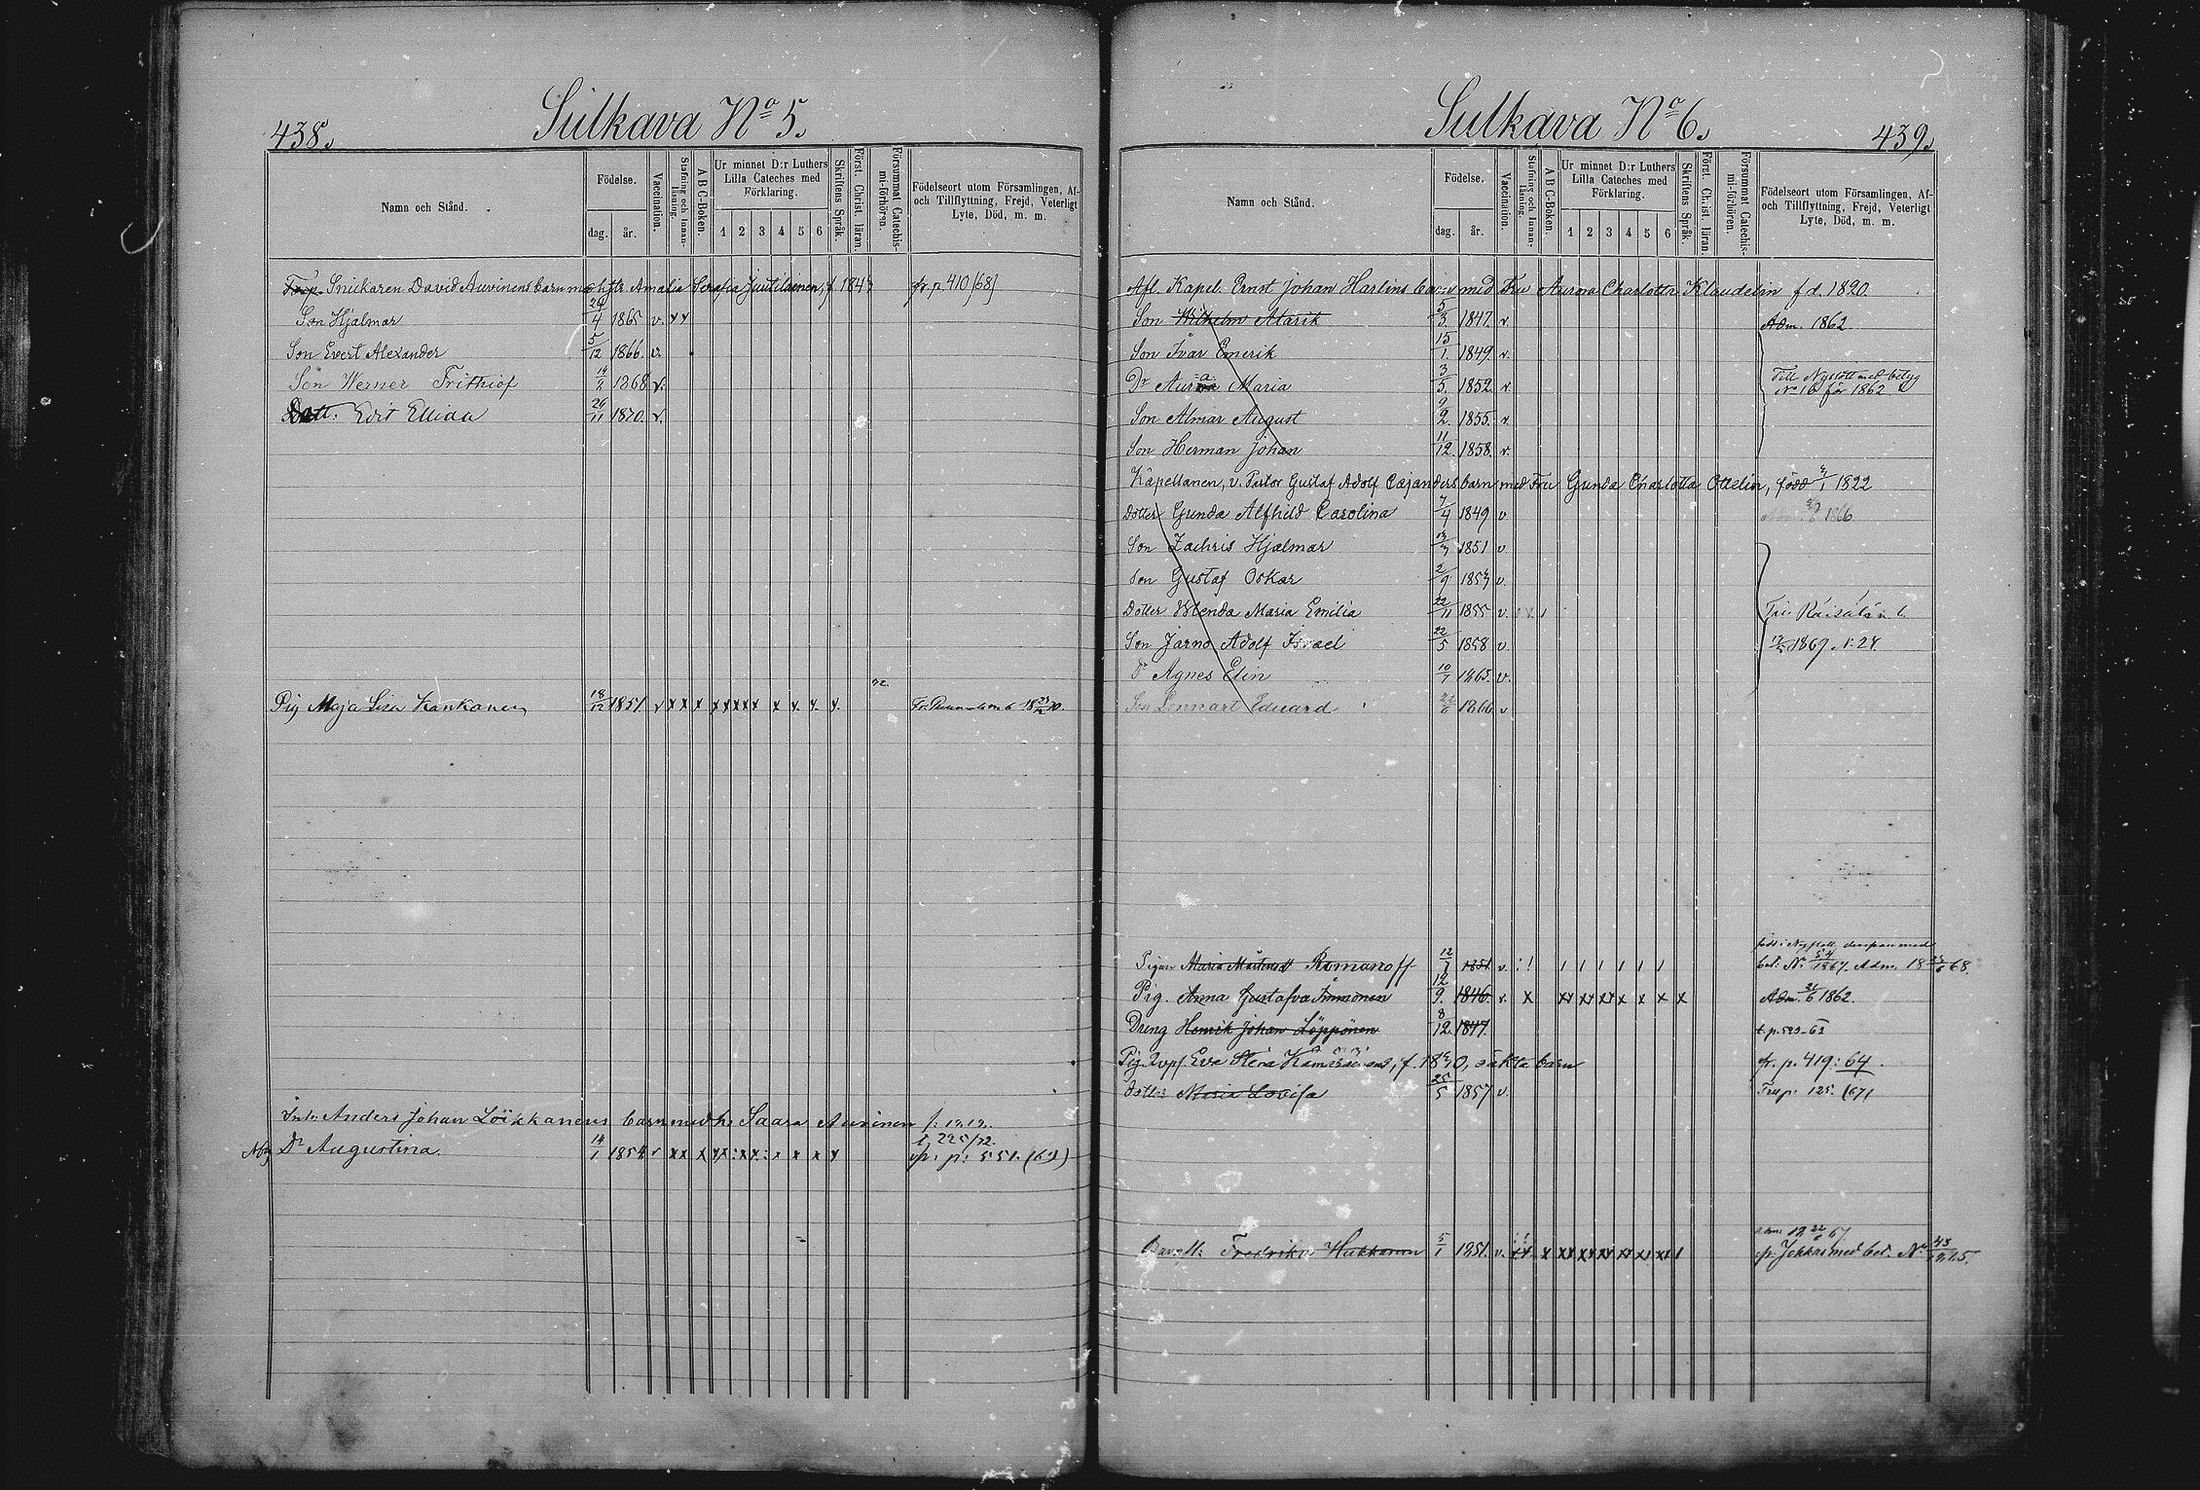 438.
Sulkava No 5.
Namn och Stånd.
Födelse.
dag.
år.
Vaccination.
Stafning och Innanläsning.
A B C-Boken.
Ur minnet D:r Luthers
Lilla Cateches med
Förklaring.
1 2 3 4 5 6
Skriftens Språk.
Först. Christ. läran.
Försummat Catechismi-förhören.
Födelseort utom Församlingen, Af-
och Tillflyttning, Frejd, Veterligt
Lyte, Död, m. m.
Torp. Snickaren David Auvinens barn m h Amalia Serafia Juutilainen, f. 184 fr. p. 410 [68]
Son Hjalmar 4 1865 v. x x
Son Evert Alexander 5/12 1866. v.
Son Werner Frithiof 1868 v.
Dott. Edit Ellida 26/11 1870. v.
Pig Maja Lisa Kankanen 18/12 1851. v x x x x x x x x x x x x
Anders Johan Löikkanens barn med h. Saara Auvinen
t. 225/72.
D:r Augustina. 14/1 1854 v x x x x x x x x x x x p. 551. (69)
439.
Sulkava No 6.
Namn och Stånd.
Födelse.
dag.
år.
Vaccination.
Stafning och Innanläsning.
A B C-Boken.
Ur minnet D:r Luthers
Lilla Cateches med
Förklaring.
1 2 3 4 5 6
Skriftens Språk.
Först. Christ. läran.
Försummat Catechismi-förhören.
Födelseort utom Församlingen, Af-
och Tillflyttning, Frejd, Veterligt
Lyte, Död, m. m.
Afl. Kapel. Ernst Johan Harlins barn med Fru Aurora Charlotta Klaudelin f d. 1820.
Son Wilhelm Alarik 5/3. 1847. v. Adm. 1862
Son Ivar Emerik 15/1. 1849. v.
Dr Aura Maria 3/5. 1852. v. Till Nyslott med betyg
No 16 för 1862
Son Almar August 9/2. 1855. v.
Son Herman Johan 11/12. 1858. v.
Kapellanen, v. Pastor Gustaf Adolf Cajanders barn med Fru Gunda Charlotta Ottelin, född 1822
Dotter Gunda Alfhild Carolina 7/4 1849 v 1866
Son Zachris Hjalmar 1851 v
Son Gustaf Oskar 2/9 1853 v.
Dotter Blenda Maria Emilia 22/11 1855 v. Till Räisälä
Son Jarno Adolf Israel 22/5 1858 v. 1869
D:r Agnes Elin 10/7 1863. v.
Son Lennart Eduard 1866 v
Pigan Maria Romanoff 12/7 1851 v. Adm. 18 68.
Pig. Anna Gustafva Immonen 12/9. 1846. v. x xx xx xx x x x x Adm. 1862.
Dräng Henrik Johan Löppönen 8/12. 1847. t. p. 529-63
barn fr. p. 419: 64
Dotter Maria Lovisa 25/5 1857 v. 125. (67)
Fredrika Hukkanen 5/1 1851. v. xx x xx xx xx xx xx